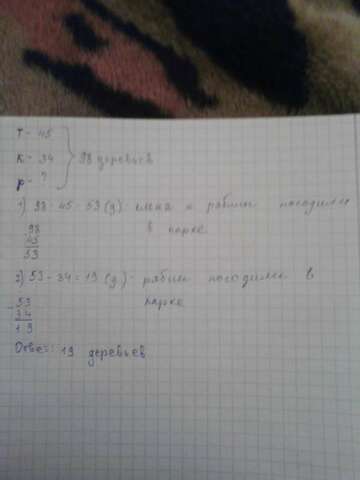 Т - 45
К - 34 } 98 деревьев
р - ?
1) 98 - 45 = 53 (д) - и рябин посадили
в парке
98
45
53
2) 53 - 34 = 19 (д) - рябин посадили в
парке
- 53
34
19
Ответ: 19 деревьев